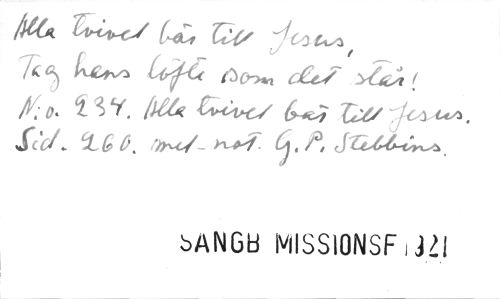 Alla tvivel bär till Jesus,
Tag hans löfte som det står!
N:o. 234. Alla tvivel bär till Jesus.
Sid. 260. met-not. G. P. Stebbins.
SANGB MISSIONSF 1921